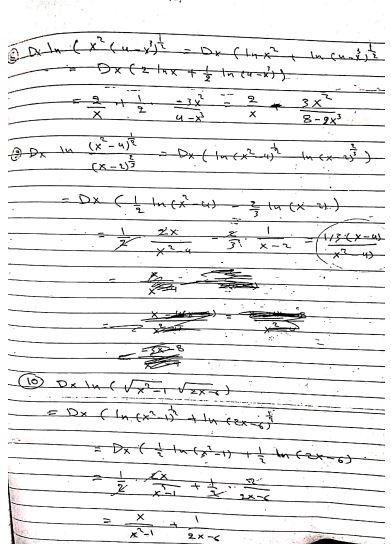 Dx ln (x²(4-x³)^½ = Dx (ln x² + ln (4-x³)^½
= Dx (2 lnx + ½ ln (4-x³))
= 2/x + 1/2 · -3x²/4-x³ = 2/x - 3x²/8-2x³
Dx ln (x²-4)^½/(x-2)^⅔ = Dx (ln (x²-4)^½ - ln (x-2)^⅔)
= Dx (½ ln (x²-4) - ⅔ ln (x-2))
= 1/2 · 2x/x²-4 - 2/3 · 1/x-2 = 1/3 (x-4)/x²-4)
(10) Dx ln (√x²-1 √2x-6)
= Dx (ln (x²-1)^½ + ln (2x-6)^½
= Dx (½ ln (x²-1) + ½ ln (2x-6)
= 1/2 · 2x/x²-1 + 1/2 · 2/2x-6
= x/x²-1 + 1/2x-6